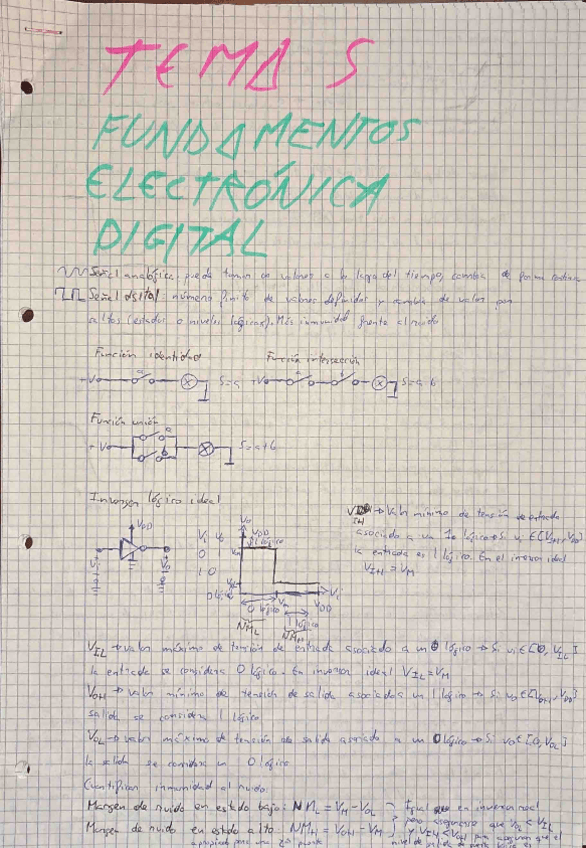 TEMA 5
FUNDAMENTOS
ELECTRÓNICA
DIGITAL
Señal analógica: puede tomar ∞ valores a lo largo del tiempo, cambia de forma continua
Señal digital: número finito de valores definidos y cambia de valor por
saltos (estados o niveles lógicos). Más inmunidad frente al ruido
Función identidad Función intersección
+V a S=a +V a b S=a·b
Función unión
+V a b S=a+b
Inversor lógico ideal
VIH → Valor mínimo de tensión de entrada
asociado a un 1 lógico → Si vi∈[VIH, VDD]
la entrada es 1 lógico. En el inversor ideal
VIH = VM
VDD Vi Vo
0 1
1 0
Vo VDD 1 lógico
0 lógico VM Vi VDD
0 lógico 1 lógico
NML NMH
VIL → valor máximo de tensión de entrada asociado a un 0 lógico → Si vi∈[0, VIL]
la entrada se considera 0 lógico. En inversor ideal VIL=VM
VOH → valor mínimo de tensión de salida asociado a un 1 lógico → Si vo∈[VOH, VDD]
salida se considera 1 lógico
VOL → valor máximo de tensión de salida asociado a un 0 lógico → Si vo∈[0, VOL]
la salida se considera un 0 lógico
Cuantifican inmunidad al ruido:
Margen de ruido en estado bajo: NML = VM - VOL Igual en inversor real
pero asegurarse que VOL < VIL
Margen de ruido en estado alto: NMH = VOH - VM y VIH < VOH para asegurar que el
nivel de salida de